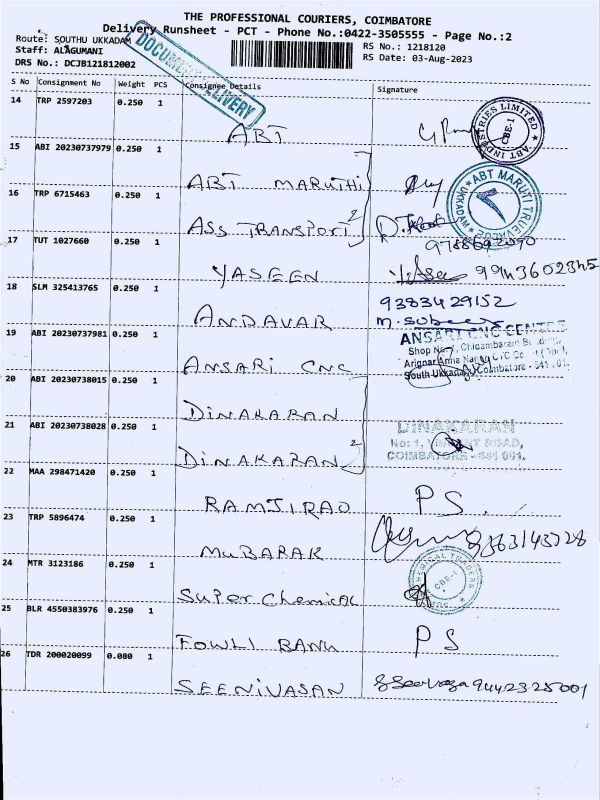 THE PROFESSIONAL COURIERS, COIMBATORE
Delivery Runsheet - PCT - Phone No.:0422-3505555 - Page No.:2
Route: SOUTHU UKKADAM
RS No.: 1218120
Staff: ALAGUMANI
RS Date: 03-Aug-2023
DRS No.: DCJB121812002
DOCUMENT DELIVERY
S No Consignment No Weight PCS Consignee Details Signature
14 TRP 2597203 0.250 1
ABT
INDUSTRIES LIMITED ★ ABT CBE-1
15 ABI 20230737979 0.250 1
ABT MARUTHI
ABT MARUTI TRUE VALUE UKKADAM
16 TRP 6715463 0.250 1
ASS TRANSPORT 2
17 TUT 1027660 0.250 1
YASEEN 9943602345
18 SLM 325413765 0.250 1
9383429152
ANDAVAR M. Subeer
19 ABI 20230737981 0.250 1
ANSARI CNC CENTRE
Shop No. 7, Chidambaram
Arignar Anna
South Ukkadam, Coimbatore - 641 001.
ANSARI CNC
20 ABI 20230738015 0.250 1
DINAKARAN
21 ABI 20230738028 0.250 1
DINAKARAN
No: 1, ROAD,
COIMBATORE - 641 001.
DINAKARAN 2
22 MAA 298471420 0.250 1
RAMJIRAO PS.
23 TRP 5896474 0.250 1
MUBARAK
24 MTR 3123186 0.250 1
CHEMICAL TRADERS CBE-1
Super Chemical
25 BLR 4550383976 0.250 1
FOWLI BANK PS
26 TDR 200020099 0.080 1
SEENIVASAN 9442325001